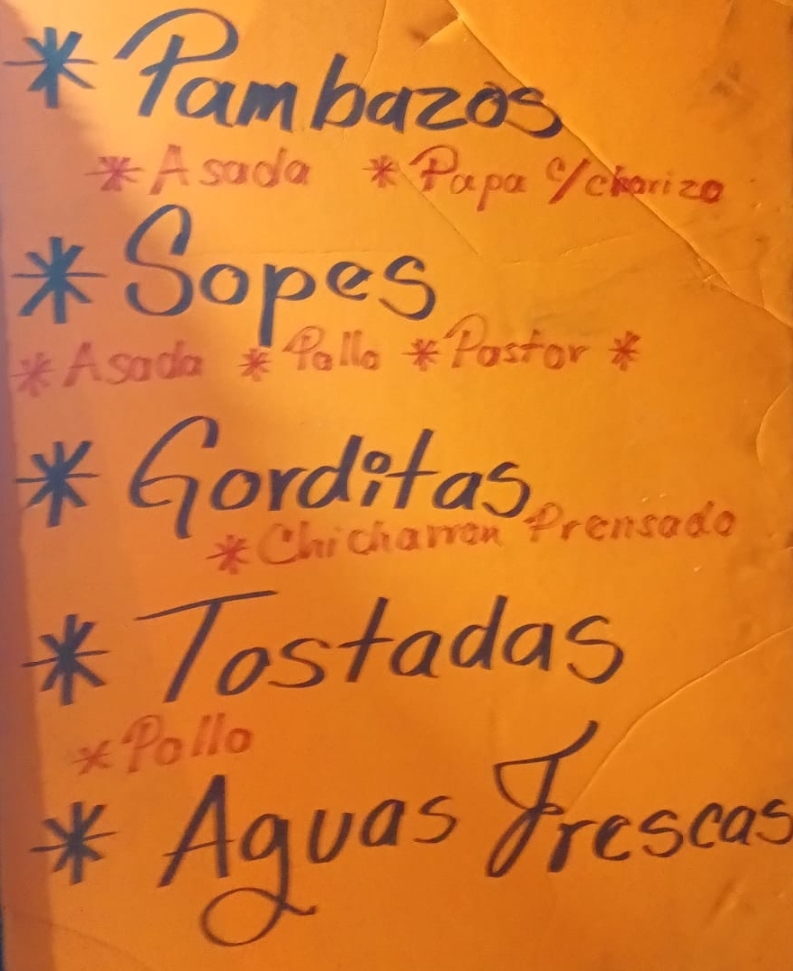 * Pambazos
* Asada * Papa c/chorizo
* Sopes
* Asada * Pollo * Pastor *
* Gorditas
* Chicharron Prensado
* Tostadas
* Pollo
* Aguas Frescas